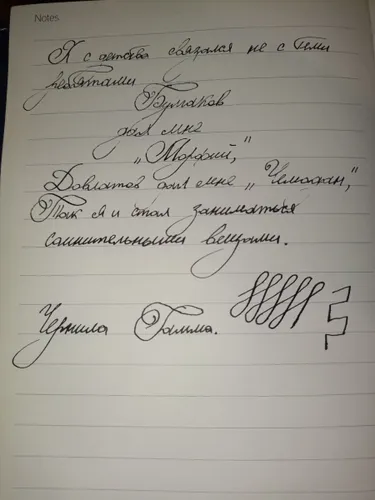 Notes
Я с детства связался не с теми
ребятами
Булгаков
дал мне
„Морфий,“
Довлатов дал мне „Чемодан,“
Так я и стал заниматься
сомнительными вещами.
Чернила Гамма.